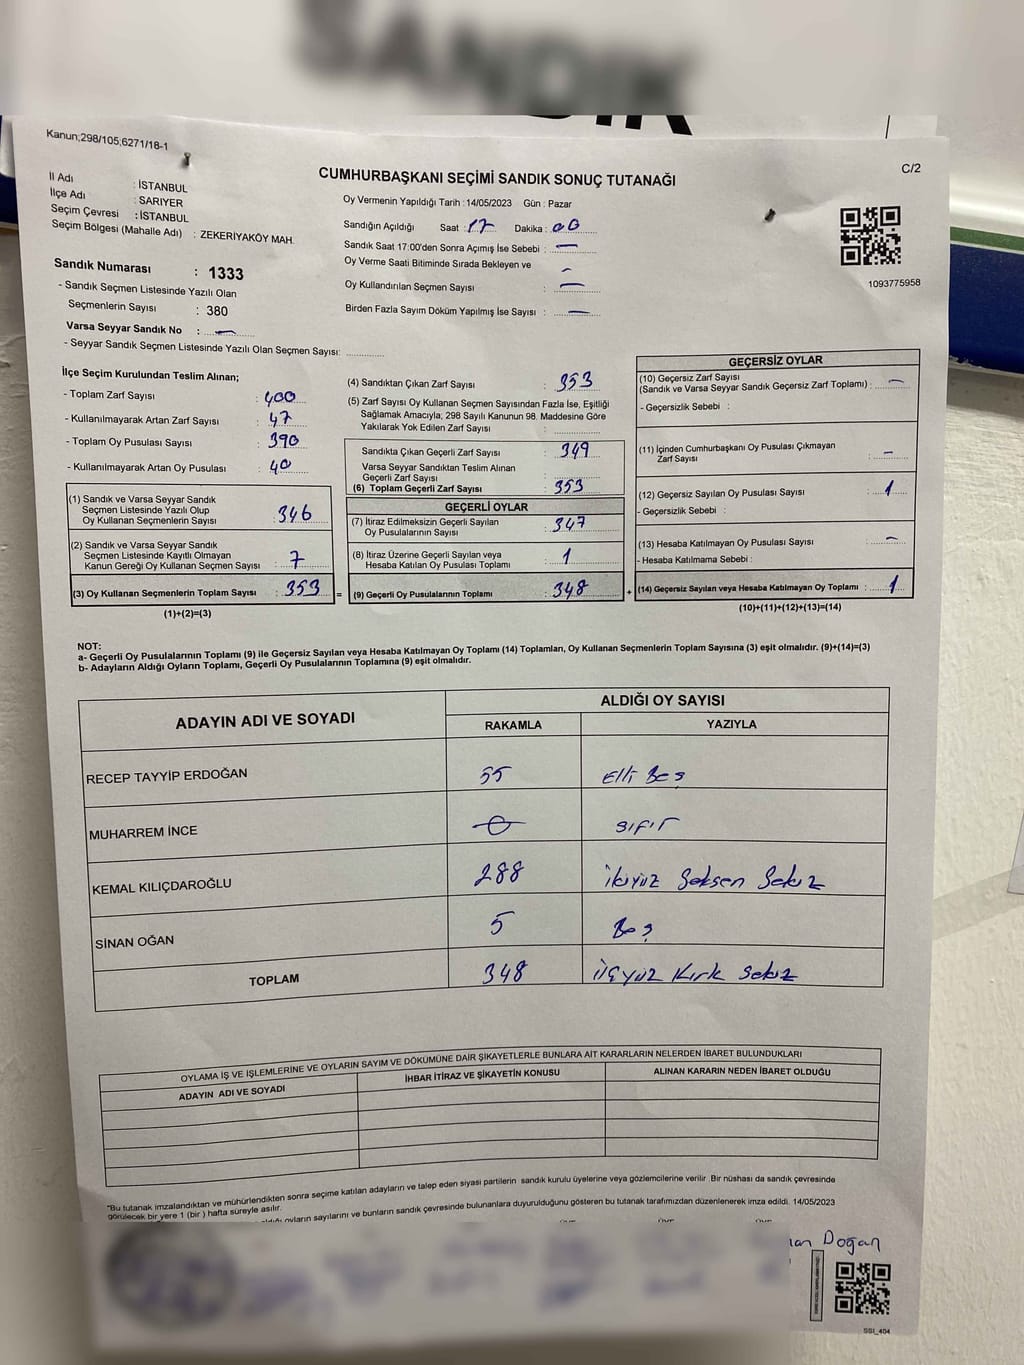 SANDIK
Kanun;298/105;6271/18-1
C/2
İl Adı : İSTANBUL
İlçe Adı : SARIYER
Seçim Çevresi : İSTANBUL
Seçim Bölgesi (Mahalle Adı) : ZEKERİYAKÖY MAH.
Sandık Numarası : 1333
- Sandık Seçmen Listesinde Yazılı Olan
Seçmenlerin Sayısı : 380
Varsa Seyyar Sandık No : —
- Seyyar Sandık Seçmen Listesinde Yazılı Olan Seçmen Sayısı:
CUMHURBAŞKANI SEÇİMİ SANDIK SONUÇ TUTANAĞI
Oy Vermenin Yapıldığı Tarih : 14/05/2023 Gün : Pazar
Sandığın Açıldığı Saat : 17 Dakika : 00
Sandık Saat 17:00'den Sonra Açımış İse Sebebi : —
Oy Verme Saati Bitiminde Sırada Bekleyen ve
Oy Kullandırılan Seçmen Sayısı : —
Birden Fazla Sayım Döküm Yapılmış İse Sayısı : —
1093775958
İlçe Seçim Kurulundan Teslim Alınan;
- Toplam Zarf Sayısı : 400
- Kullanılmayarak Artan Zarf Sayısı : 47
- Toplam Oy Pusulası Sayısı : 390
- Kullanılmayarak Artan Oy Pusulası : 40
(1) Sandık ve Varsa Seyyar Sandık
Seçmen Listesinde Yazılı Olup
Oy Kullanan Seçmenlerin Sayısı : 346
(2) Sandık ve Varsa Seyyar Sandık
Seçmen Listesinde Kayıtlı Olmayan
Kanun Gereği Oy Kullanan Seçmen Sayısı : 7
(3) Oy Kullanan Seçmenlerin Toplam Sayısı : 353 =
(1)+(2)=(3)
(4) Sandıktan Çıkan Zarf Sayısı : 353
(5) Zarf Sayısı Oy Kullanan Seçmen Sayısından Fazla İse, Eşitliği
Sağlamak Amacıyla; 298 Sayılı Kanunun 98. Maddesine Göre
Yakılarak Yok Edilen Zarf Sayısı :
Sandıkta Çıkan Geçerli Zarf Sayısı : 349
Varsa Seyyar Sandıktan Teslim Alınan
Geçerli Zarf Sayısı :
(6) Toplam Geçerli Zarf Sayısı : 353
GEÇERLİ OYLAR
(7) İtiraz Edilmeksizin Geçerli Sayılan
Oy Pusulalarının Sayısı : 347
(8) İtiraz Üzerine Geçerli Sayılan veya
Hesaba Katılan Oy Pusulası Toplamı : 1
(9) Geçerli Oy Pusulalarının Toplamı : 348 +
GEÇERSİZ OYLAR
(10) Geçersiz Zarf Sayısı
(Sandık ve Varsa Seyyar Sandık Geçersiz Zarf Toplamı) : —
- Geçersizlik Sebebi :
(11) İçinden Cumhurbaşkanı Oy Pusulası Çıkmayan
Zarf Sayısı : —
(12) Geçersiz Sayılan Oy Pusulası Sayısı : 1
- Geçersizlik Sebebi :
(13) Hesaba Katılmayan Oy Pusulası Sayısı : —
- Hesaba Katılmama Sebebi :
(14) Geçersiz Sayılan veya Hesaba Katılmayan Oy Toplamı : 1
(10)+(11)+(12)+(13)=(14)
NOT:
a- Geçerli Oy Pusulalarının Toplamı (9) ile Geçersiz Sayılan veya Hesaba Katılmayan Oy Toplamı (14) Toplamları, Oy Kullanan Seçmenlerin Toplam Sayısına (3) eşit olmalıdır. (9)+(14)=(3)
b- Adayların Aldığı Oyların Toplamı, Geçerli Oy Pusulalarının Toplamına (9) eşit olmalıdır.
ADAYIN ADI VE SOYADI ALDIĞI OY SAYISI
RAKAMLA YAZIYLA
RECEP TAYYİP ERDOĞAN 55 Elli Beş
MUHARREM İNCE 0 sıfır
KEMAL KILIÇDAROĞLU 288 ikiyüz Seksen Sekiz
SİNAN OĞAN 5 Beş
TOPLAM 348 üçyüz Kırk Sekiz
OYLAMA İŞ VE İŞLEMLERİNE VE OYLARIN SAYIM VE DÖKÜMÜNE DAİR ŞİKAYETLERLE BUNLARA AİT KARARLARIN NELERDEN İBARET BULUNDUKLARI
ADAYIN ADI VE SOYADI İHBAR İTİRAZ VE ŞİKAYETİN KONUSU ALINAN KARARIN NEDEN İBARET OLDUĞU
*Bu tutanak imzalandıktan ve mühürlendikten sonra seçime katılan adayların ve talep eden siyasi partilerin sandık kurulu üyelerine veya gözlemcilerine verilir. Bir nüshası da sandık çevresinde
görülecek bir yere 1 (bir) hafta süreyle asılır.
oyların sayılarını ve bunların sandık çevresinde bulunanlara duyurulduğunu gösteren bu tutanak tarafımızdan düzenlenerek imza edildi. 14/05/2023
Doğan
SSİ_404